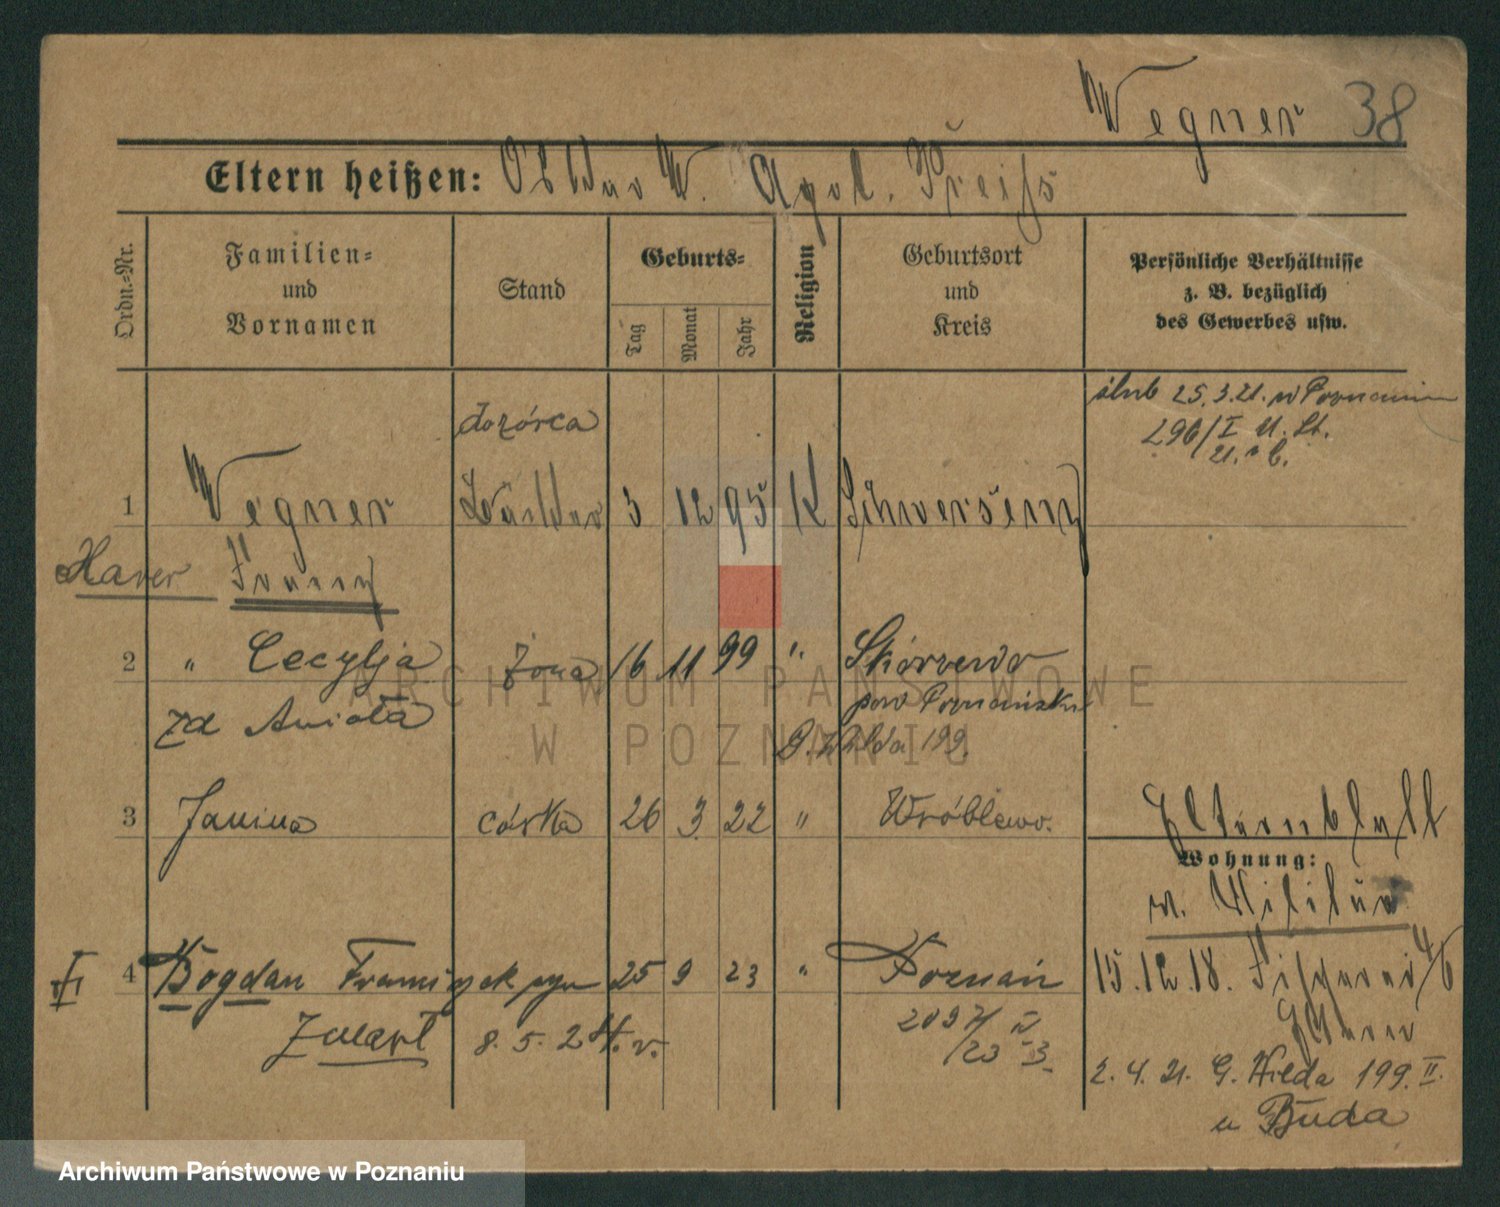 Wegner 38
Eltern heißen: W. Apol. Preiß
Ordn.=Nr.
Familien=
und
Vornamen
Stand
Geburts=
Tag
Monat
Jahr
Religion
Geburtsort
und
Kreis
Persönliche Verhältnisse
z. B. bezüglich
des Gewerbes usw.
ślub 25.3.21. w Poznaniu
296/I U. St.
dozórca
1 Wegner 3 12 95 K Schwersenz
Xaver Franz
2 " Cecylja żona 16 11 99 " Skórzewo
zd Anioła pow Poznański
G. Wilda 199.
3 Janina córka 26 3 22 " Wróblewo.
Elternblatt
Wohnung:
v. Militär
4 Bogdan Franciszek syn 25 9 23 " Poznań
15.12.18. 4/6
Eltern
Zmarł 8. 5. 24. r.
2. 4. 21. G. Wilda 199. II.
u Buda
ARCHIWUM PAŃSTWOWE
W POZNANIU
Archiwum Państwowe w Poznaniu